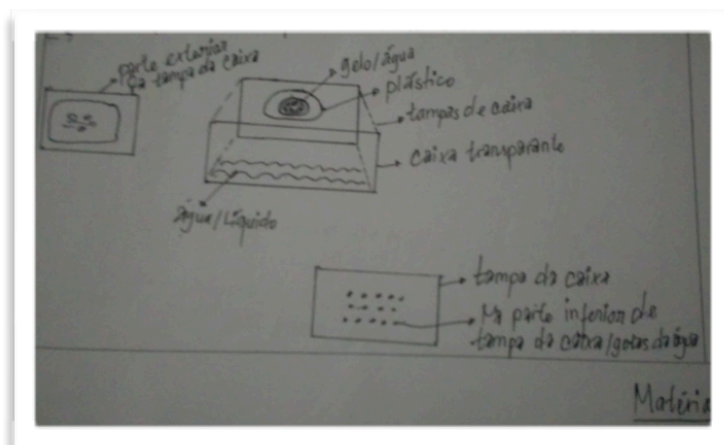 parte exterior
da tampa da caixa
gelo/água
plástico
tampas de caixa
caixa transparante
água/Líquido
tampa da caixa
Na parte inferior de
tampa da caixa/gotas da água
Matéria